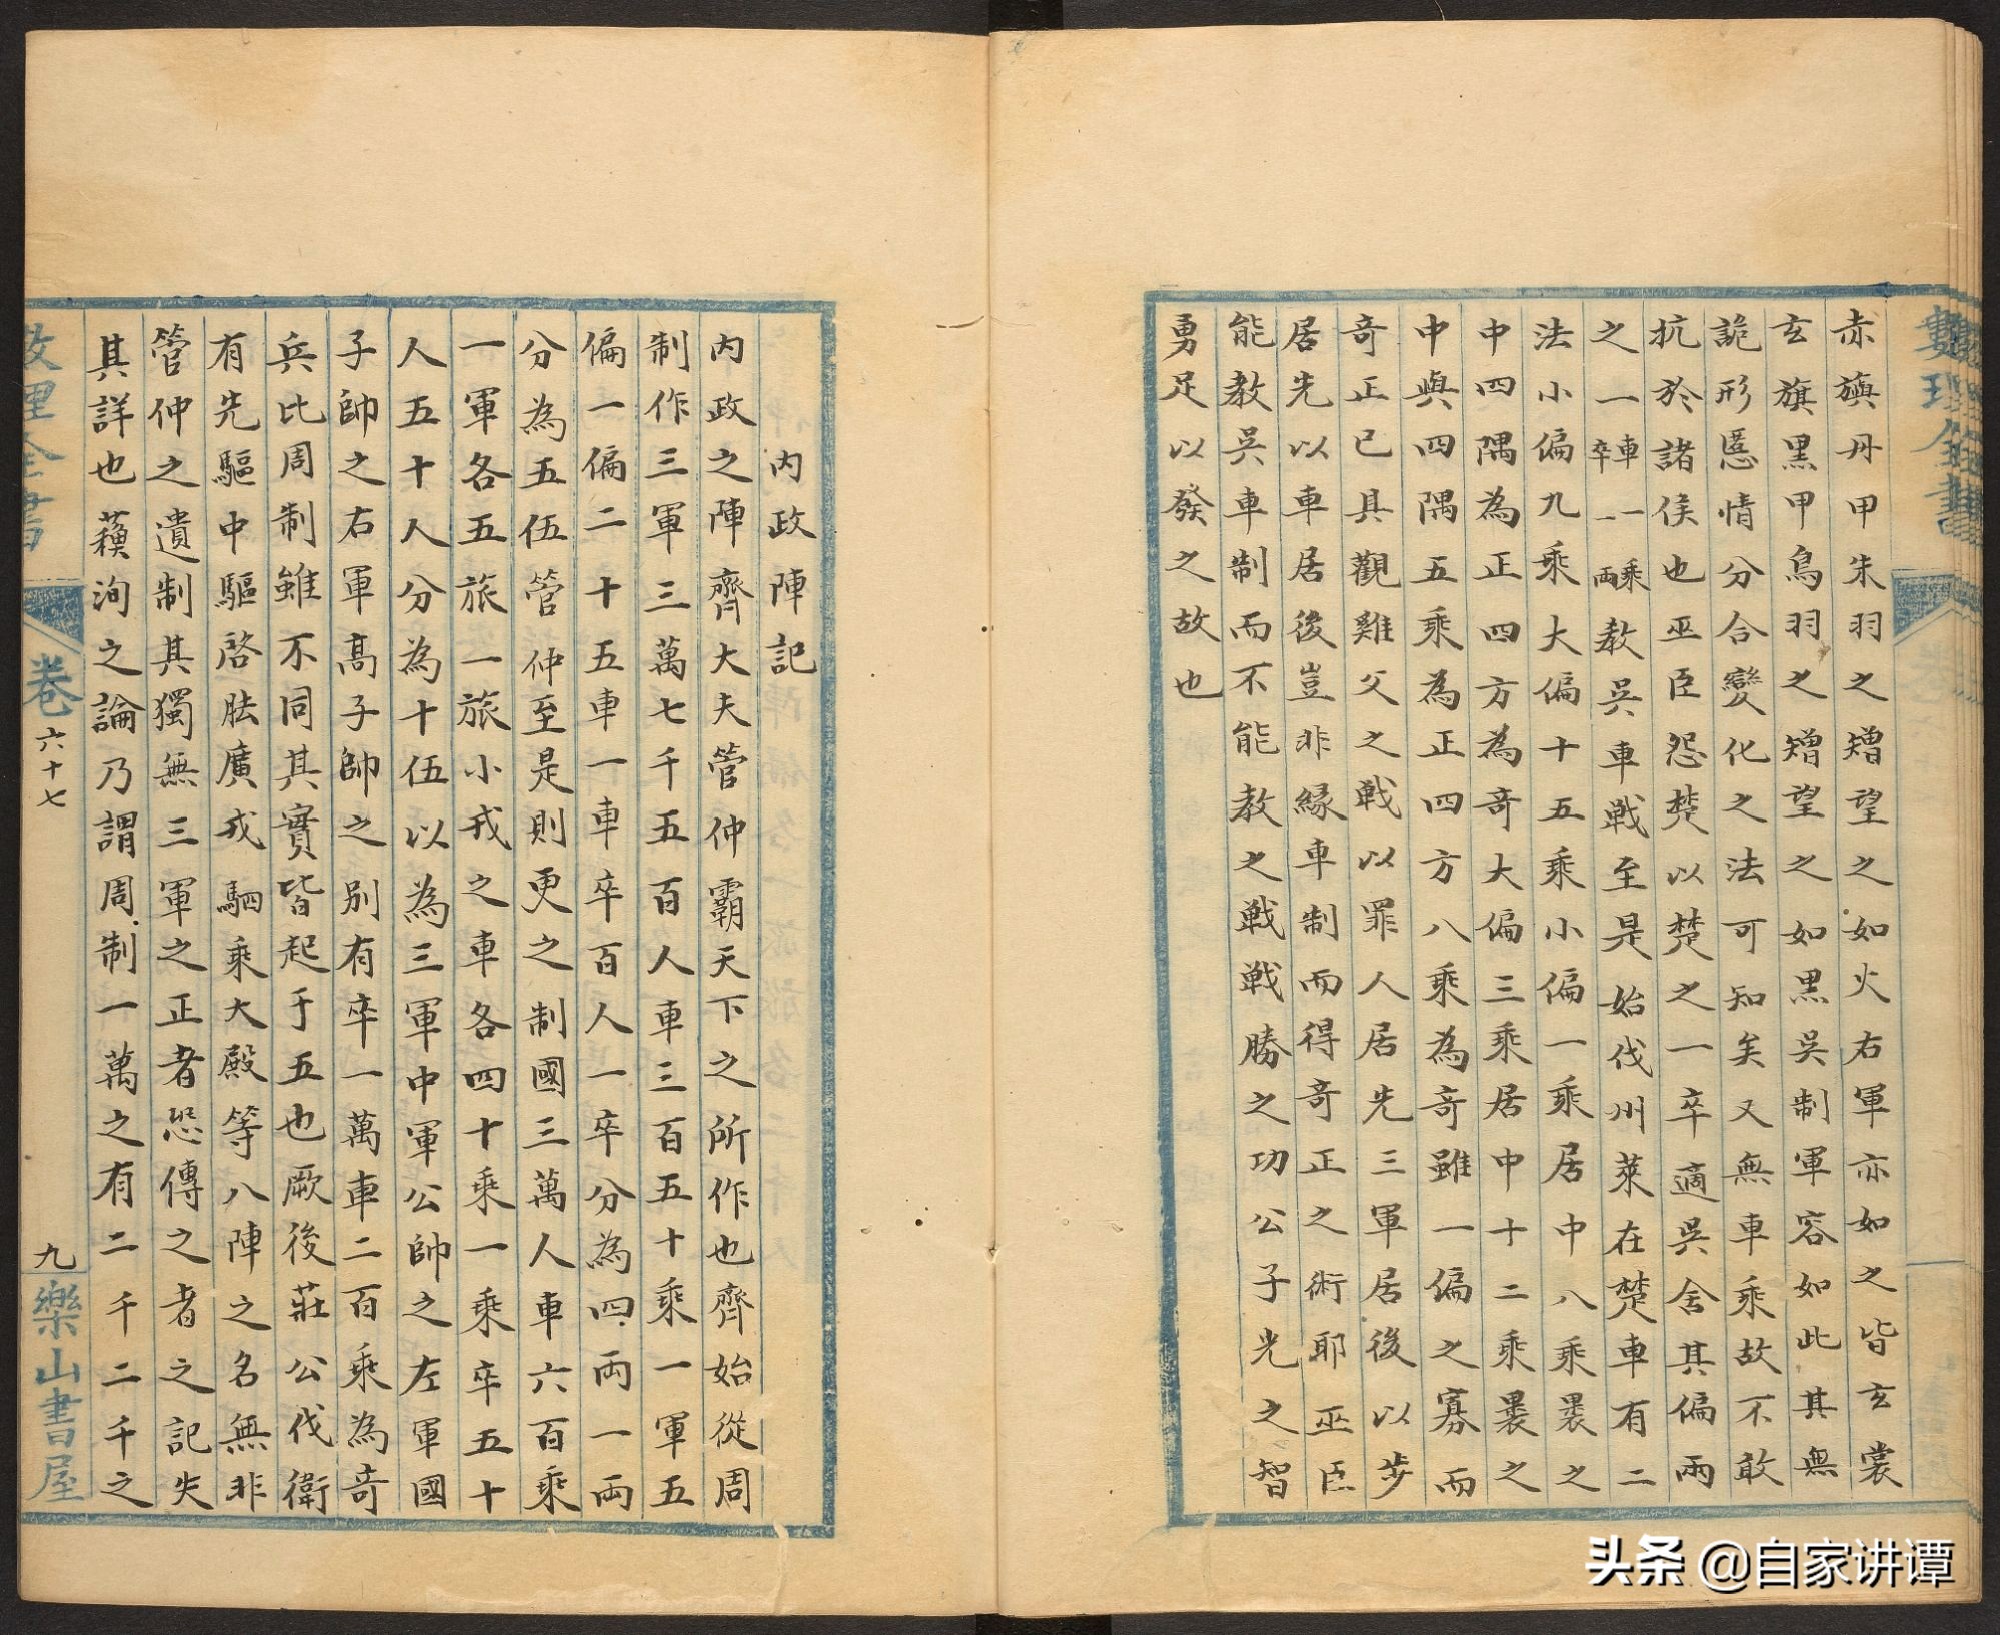 赤旟丹甲朱羽之矰望之如火右軍亦如之皆玄裳
玄旗黑甲烏羽之矰望之如黑吳制軍容如此其無
詭形慝情分合變化之法可知矣又無車乘故不敢
抗於諸侯也巫臣怨楚以楚之一卒適吳舍其偏兩
之一卒車一兩乘教吳車戰至是始伐州萊在楚車有二
法小偏九乘大偏十五乘小偏一乘居中八乘褁之
中四隅為正四方為奇大偏三乘居中十二乘褁之
中與四隅五乘為正四方八乘為奇雖一偏之寡而
奇正已具觀雞父之戰以罪人居先三軍居後以步
居先以車居後豈非緣車制而得奇正之術耶巫臣
能教吳車制而不能教之戰戰勝之功公子光之智
勇足以發之故也
內政陣記
內政之陣齊大夫管仲霸天下之所作也齊始從周
制作三軍三萬七千五百人車三百五十乘一軍五
偏一偏二十五車一車卒百人一卒分為四兩一兩
分為五伍管仲至是則更之制國三萬人車六百乘
一軍各五旅一旅小戎之車各四十乘一乘卒五十
人五十人分為十伍以為三軍中軍公帥之左軍國
子帥之右軍高子帥之別有卒一萬車二百乘為奇
兵比周制雖不同其實皆起于五也厥後莊公伐衛
有先驅中驅啓胠廣戎駟乘大殿等八陣之名無非
管仲之遺制其獨無三軍之正者恐傳之者之記失
其詳也蘓洵之論乃謂周制一萬之有二千二千之
數理全書
卷六十七
九
樂山書屋
头条 @自家讲谭